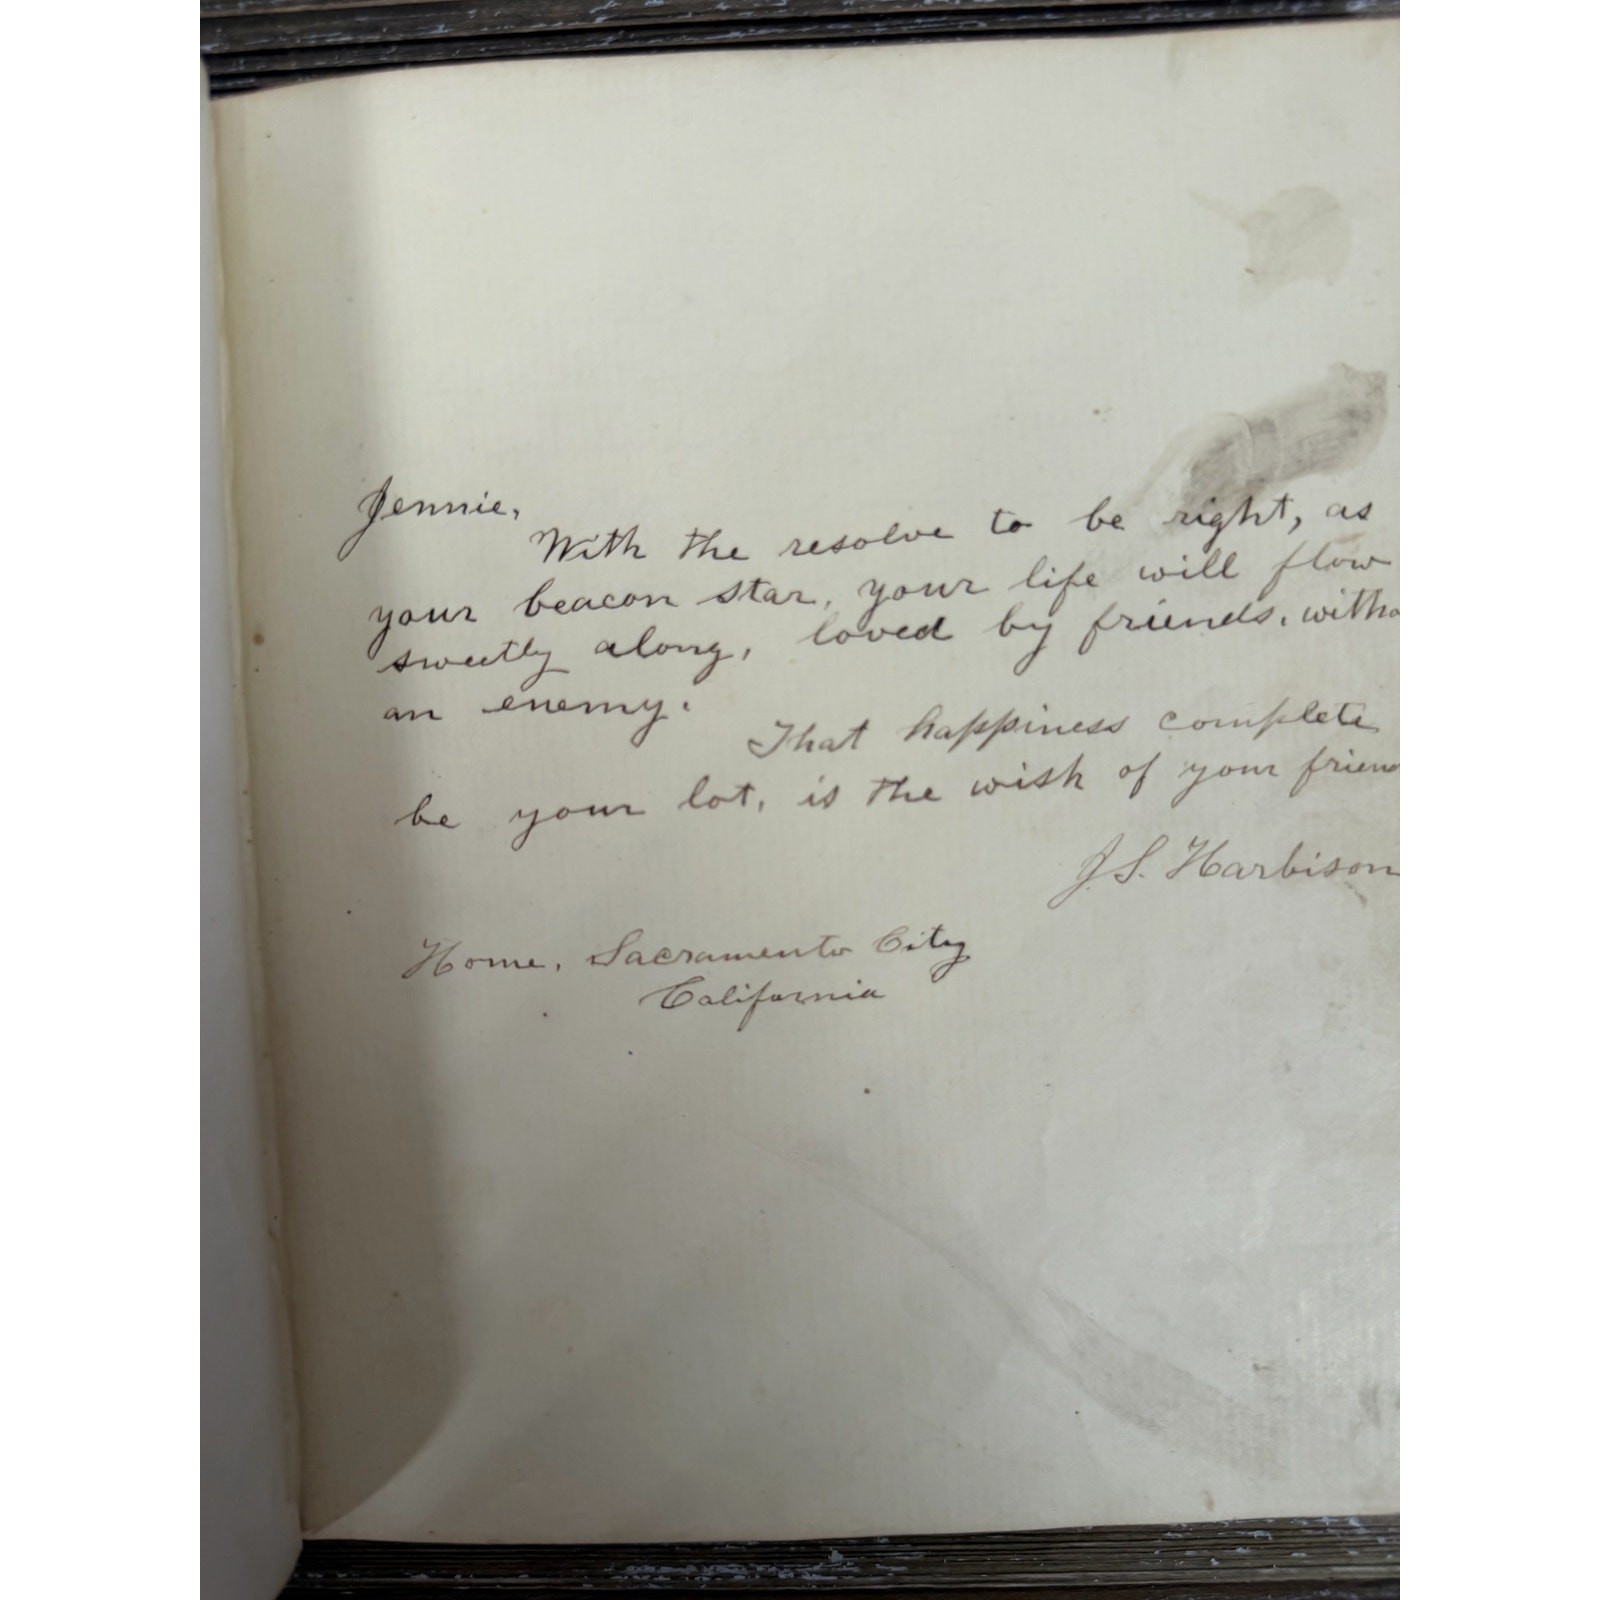 Jennie,
With the resolve to be right, as
your beacon star, your life will flow
sweetly along, loved by friends, witho
an enemy.
That happiness complete
be your lot, is the wish of your friend
J. S. Harbison
Home, Sacramento City
California